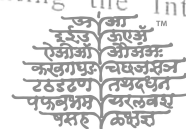 ting the Int
अ आ ™
इ ई उ ऊ ए ऐ
ओ औ अं अः
क ख ग घ ङ च छ ज झ ञ
ट ठ ड ढ ण त थ द ध न
प फ ब भ म य र ल व श
ष स ह ळ क्ष ज्ञ